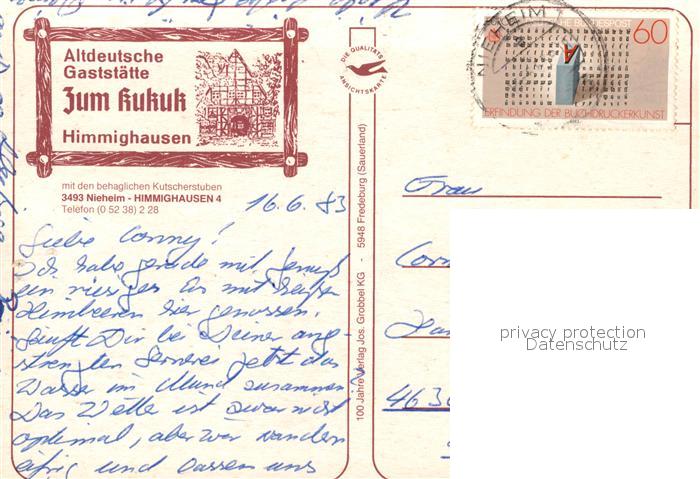 Altdeutsche
Gaststätte
Zum Kukuk
Himmighausen
mit den behaglichen Kutscherstuben
3493 Nieheim - HIMMIGHAUSEN 4
Telefon (0 52 38) 2 28
16.6.83
Liebe Conny!
Ich habe gerade mit Genuß
ein riesiges Eis mit heißen
Himbeeren hier genossen.
Läuft Dir bei Deiner ange-
strengten jetzt das
Wasser im Mund zusammen?
Das Wetter ist zwar nicht
optimal, aber wir wandern
eifrig und lassen uns
DIE QUALITÄTS
ANSICHTSKARTE
100 Jahre Verlag Jos. Grobbel KG - 5948 Fredeburg (Sauerland)
NIEHEIM 1
HE BUNDESPOST
60
A
ERFINDUNG DER BUCHDRUCKERKUNST
Frau
463
privacy protection
Datenschutz